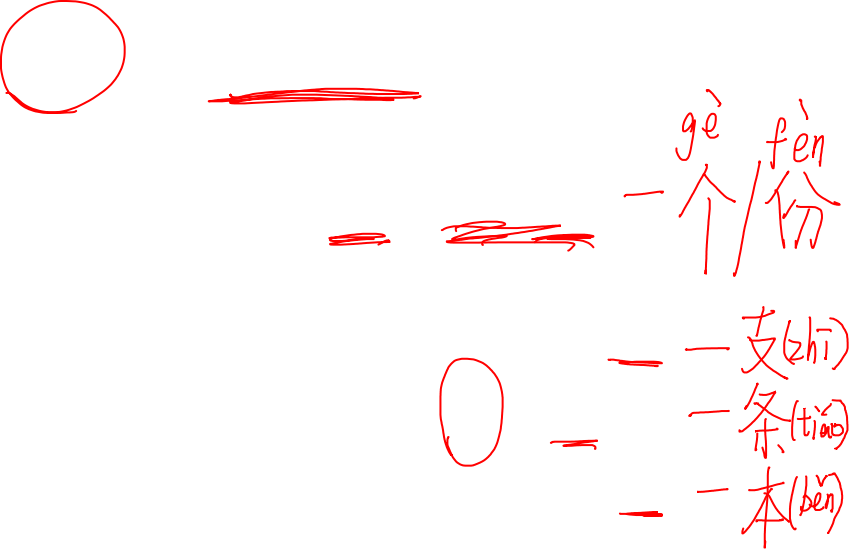 gè fèn
一个/份
一支(zhī)
一条(tiáo)
一本(běn)